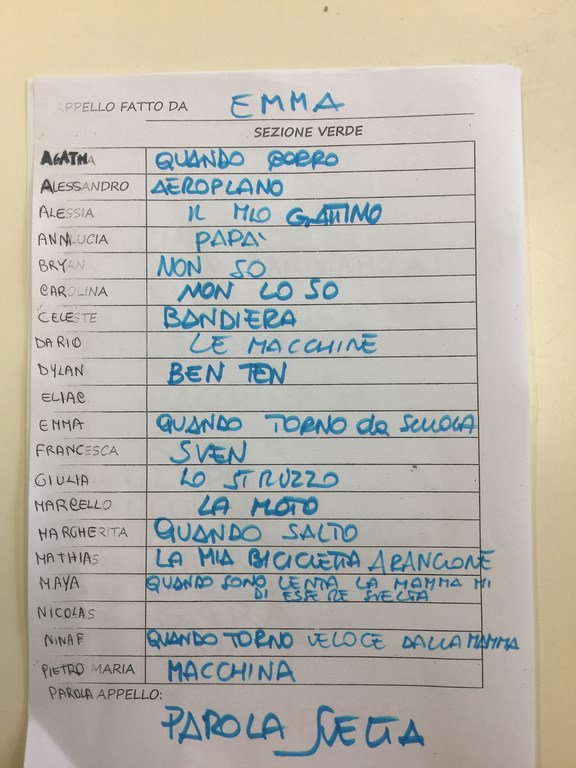 APPELLO FATTO DA EMMA
SEZIONE VERDE
AGATHA QUANDO CORRO
ALESSANDRO AEROPLANO
ALESSIA IL MIO GATTINO
ANNALUCIA PAPA'
BRYAN NON SO
CAROLINA NON LO SO
CELESTE BANDIERA
DARIO LE MACCHINE
DYLAN BEN TEN
ELIAC
EMMA QUANDO TORNO da SCUOLA
FRANCESCA SVEN
GIULIA LO STRUZZO
MARCELLO LA MOTO
MARGHERITA QUANDO SALTO
MATHIAS LA MIA BICICLETTA ARANCIONE
MAYA QUANDO SONO LENTA LA MAMMA MI
DI ESSERE SVELTA
NICOLAS
NINAF QUANDO TORNO VELOCE DALLA MAMMA
PIETRO MARIA MACCHINA
PAROLA APPELLO:
PAROLA SVELTA